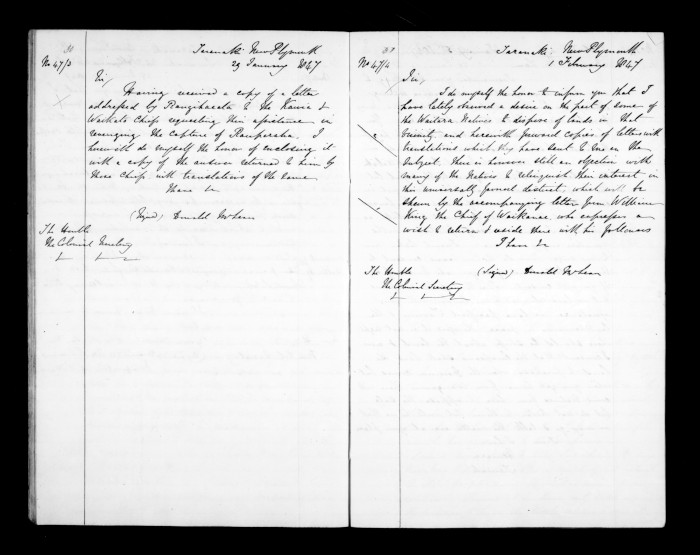 No 47/3
Taranaki New Plymouth
29 January 1847
Sir,
Having received a copy of a letter
addressed by Rangihaeata to the Kawia &
Waikato Chiefs requesting their assistance in
revenging the capture of Rauparaha. I
herewith do myself the honor of enclosing it
with a copy of the answer returned to him by
those Chiefs with translations of the same
I have &c
(Signed) Donald McLean
The Honble
The Colonial Secretary
No 47/4
Taranaki New Plymouth
1 February 1847
Sir,
I do myself the honor to inform you that I
have lately observed a desire on the part of some of
the Waitara Natives to dispose of lands in that
vicinity and herewith forward copies of letters with
translations which they have sent to me on the
subject. There is however still an objection with
many of the Natives to relinquish their interest in
this universally favored district, which will be
shewn by the accompanying letter from William
King the Chief of Waikanae who expresses a
wish to return & reside there with his followers
I have &c
(Signed) Donald McLean
The Honble
The Colonial Secretary